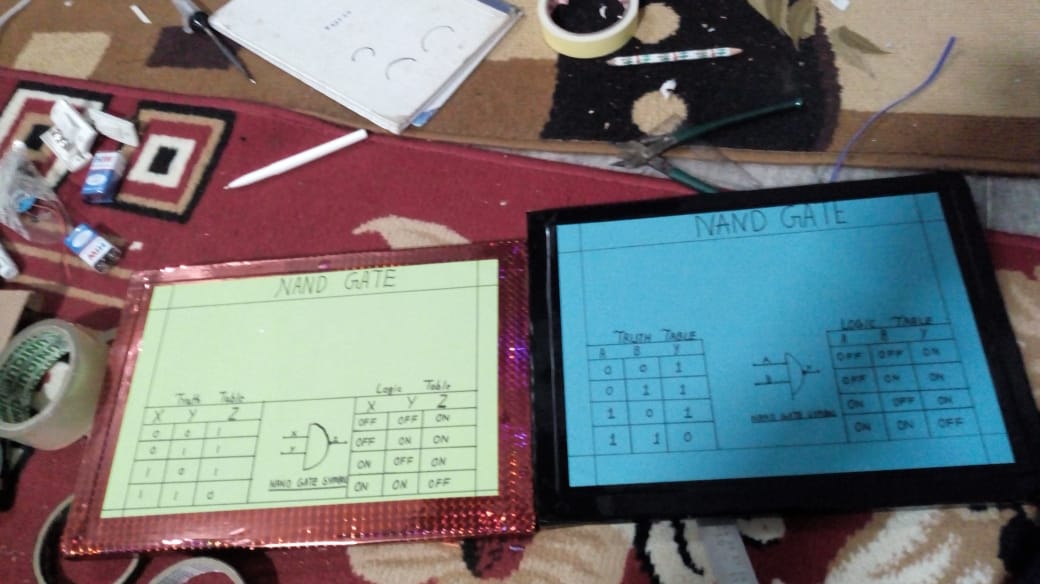 NAND GATE
Truth Table
X Y Z
0 0 1
0 1 1
1 0 1
1 1 0
X
Y
NAND GATE SYMBOL
Logic Table
X Y Z
OFF OFF ON
OFF ON ON
ON OFF ON
ON ON OFF
NAND GATE
TRUTH TABLE
A B Y
0 0 1
0 1 1
1 0 1
1 1 0
A
B
Y
NAND GATE SYMBOL
LOGIC TABLE
A B Y
OFF OFF ON
OFF ON ON
ON OFF ON
ON ON OFF